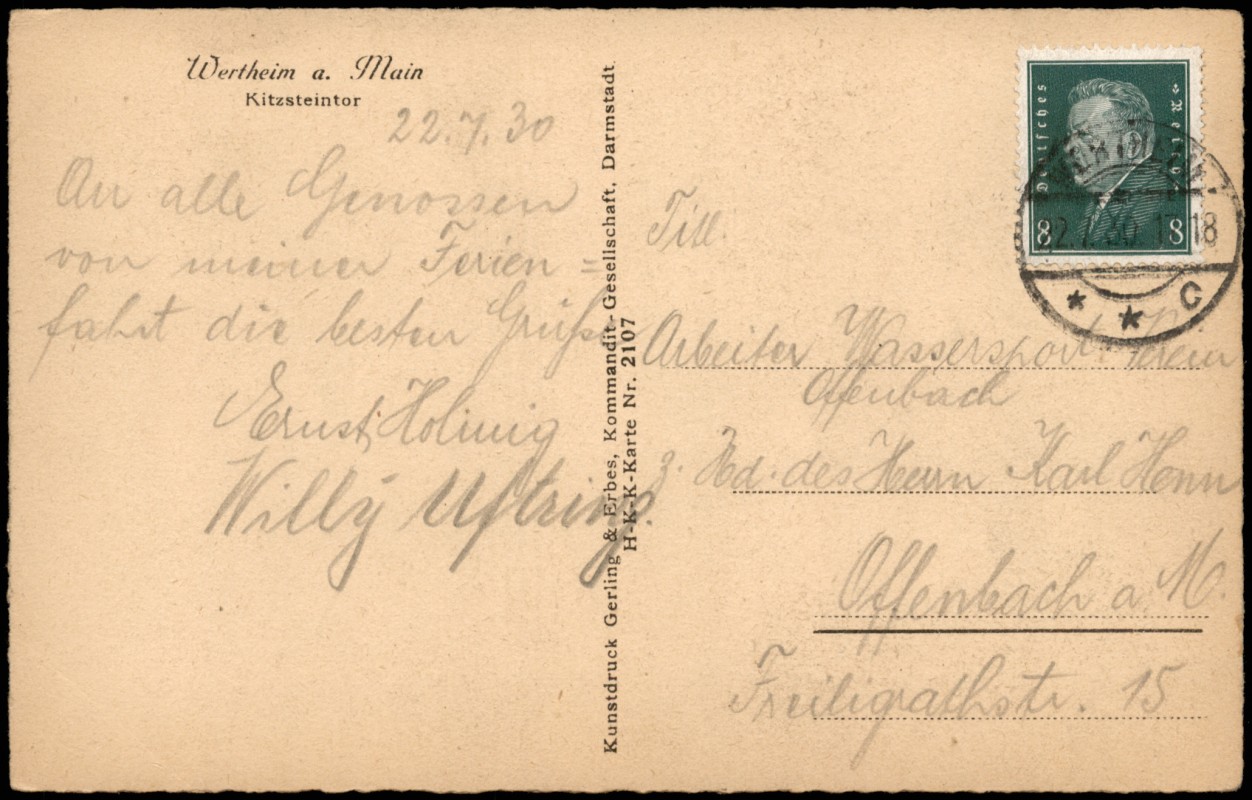 Wertheim a. Main
Kitzsteintor
22.7.30
An alle Genossen
von meiner Ferien=
fahrt die besten Grüße
Ernst
Willy
Kunstdruck Gerling & Erbes, Kommandit-Gesellschaft, Darmstadt
H-K-K-Karte Nr. 2107
Deutsches Reich
8 8
22.7.30 17-18
* * C
Titl.
Arbeiter Wassersport Verein
Offenbach
z. Hd. des Herrn Karl Henn
Offenbach a M.
Freiligrathstr. 15